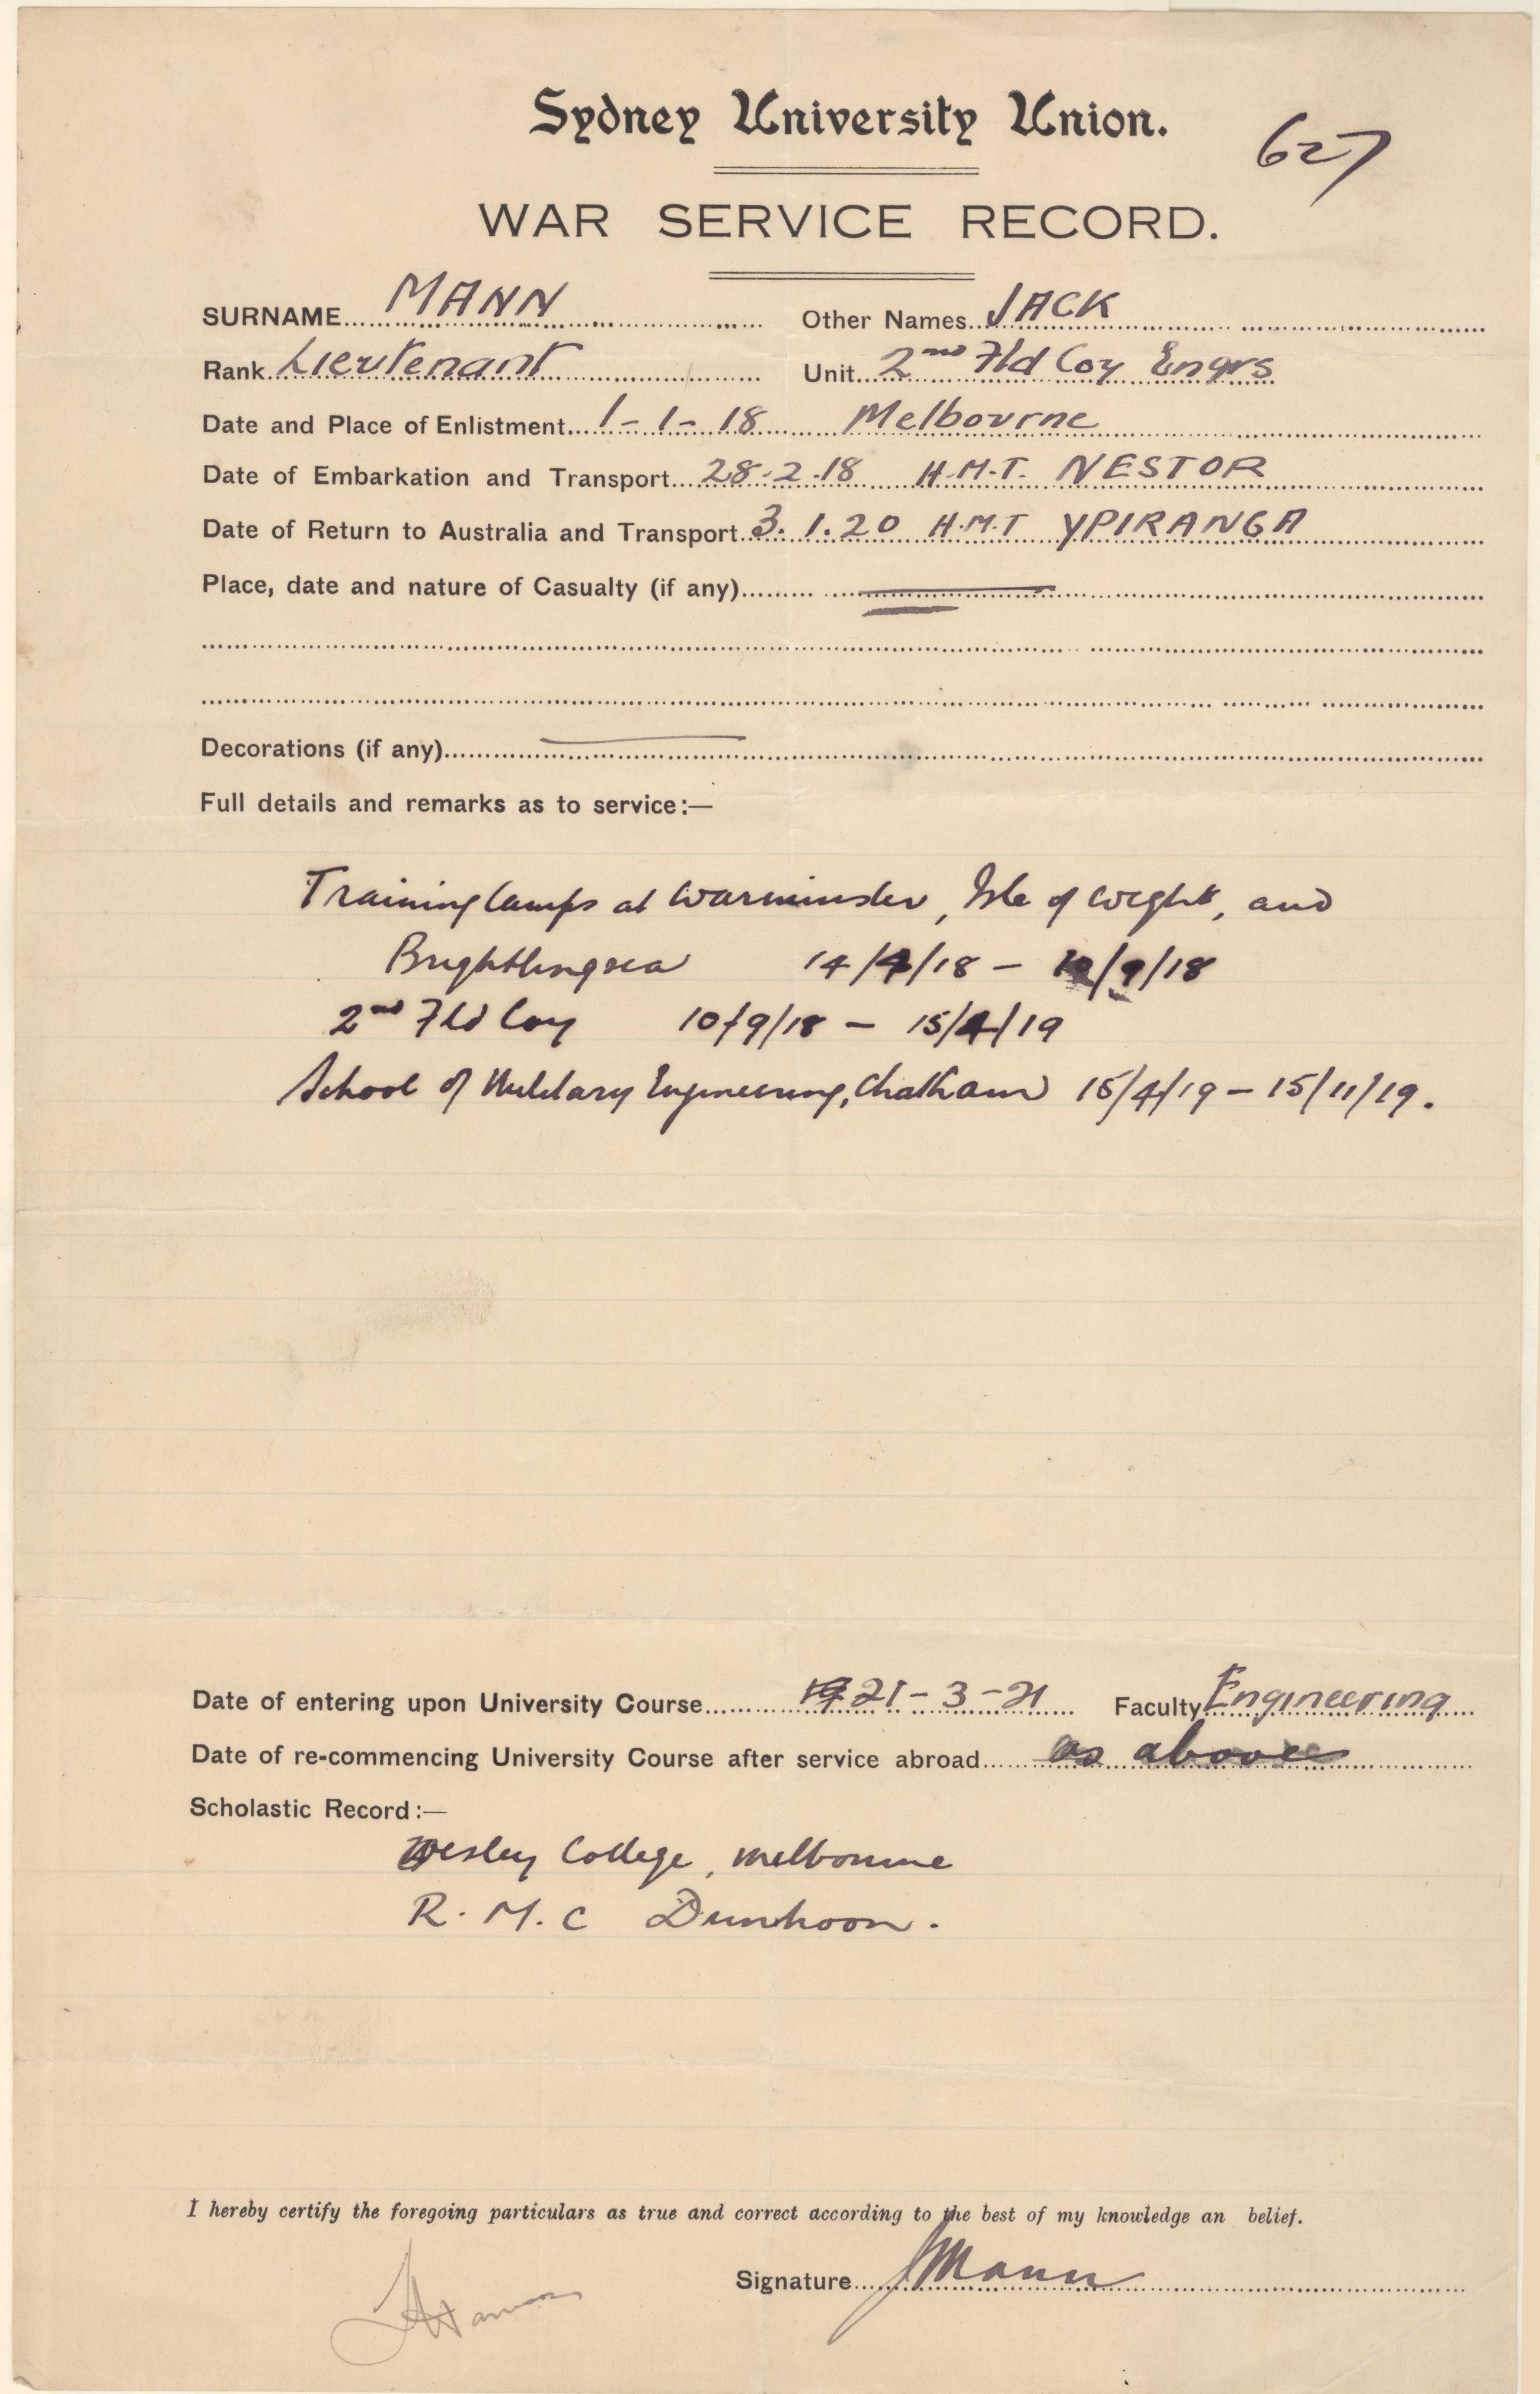 Sydney University Union.
627
WAR SERVICE RECORD.
SURNAME MANN Other Names JACK
Rank Lieutenant Unit 2nd Fld Coy Engrs
Date and Place of Enlistment 1-1-18 Melbourne
Date of Embarkation and Transport 28.2.18 H.M.T. NESTOR
Date of Return to Australia and Transport 3.1.20 H.M.T YPIRANGA
Place, date and nature of Casualty (if any)
Decorations (if any)
Full details and remarks as to service:—
Training Camps at Warminster, Isle of Wight, and
Brightlingsea 14/4/18 – 10/9/18
2nd Fld Coy 10/9/18 – 15/4/19
School of Military Engineering, Chatham 15/4/19 – 15/11/19.
Date of entering upon University Course 21-3-21 Faculty Engineering
Date of re-commencing University Course after service abroad as above
Scholastic Record:—
Wesley College, Melbourne
R.M.C Duntroon.
I hereby certify the foregoing particulars as true and correct according to the best of my knowledge an belief.
Signature JMann